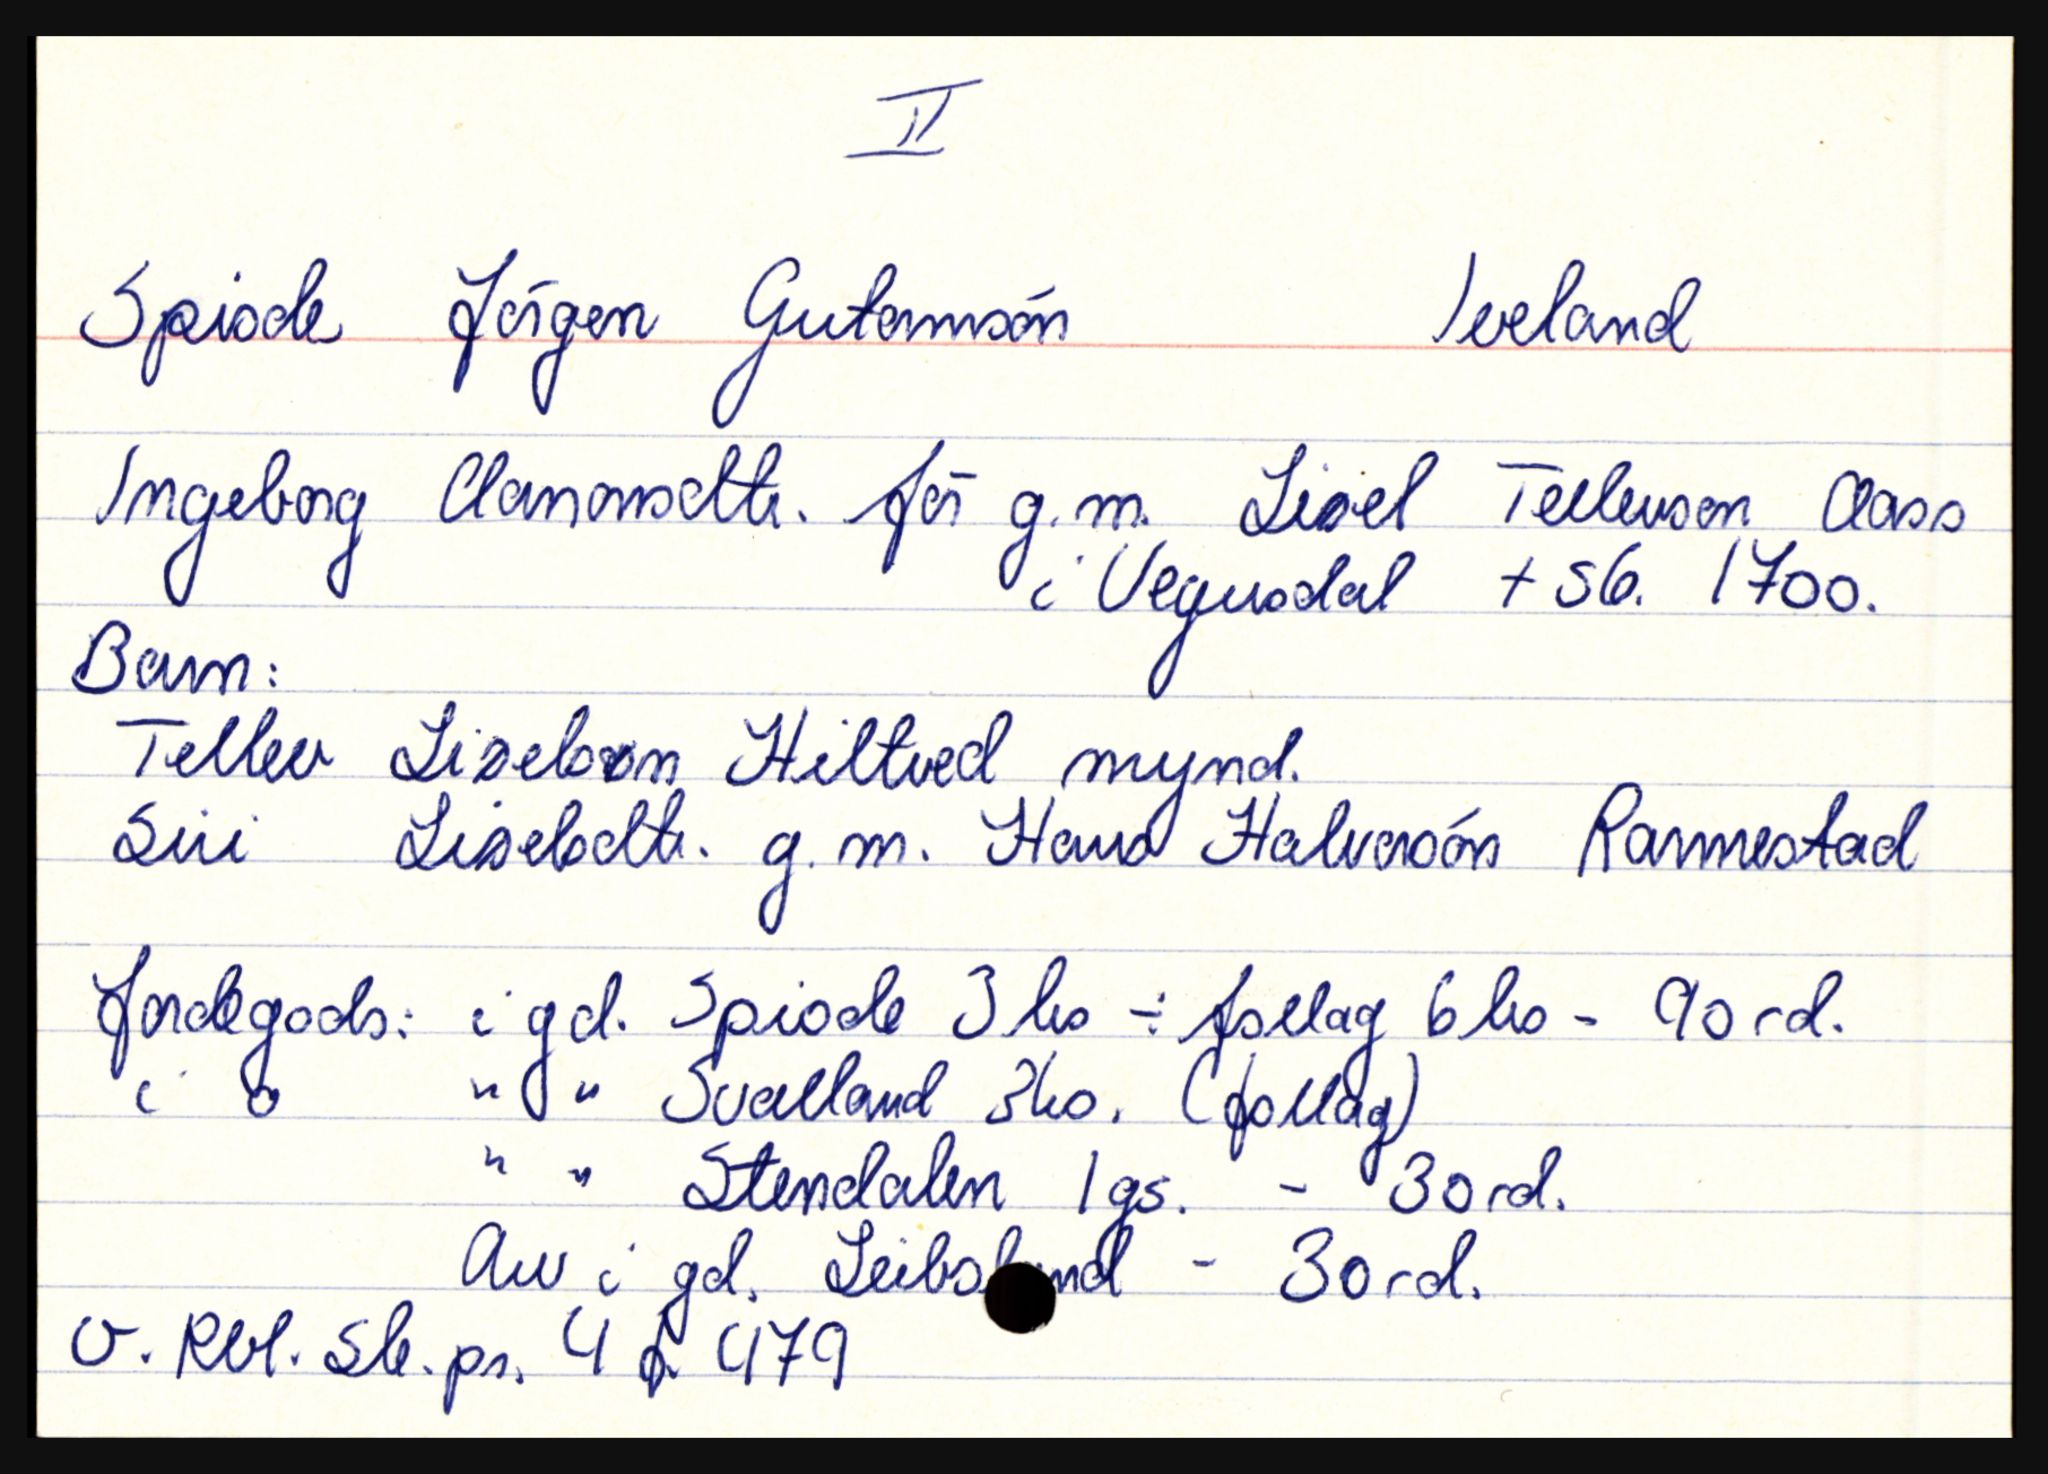 II
Spiode Jörgen Gutormsón Iveland
Ingeborg Aanonsdtr. för g.m. Lisel Tellevson Aass
i Vegusdal + sb. 1700.
Barn:
Tellev Liselsson Hiltved mynd.
Siri Liselsdtr. g.m. Haus Halvorsón Rannestad
Jordegods: i gd. Spiode 3 hs ÷ follag 6 hs - 90 rd.
i o " " Svalland 3hs. (follag)
" " Stendalen 1 gs. - 30 rd.
Arv i gd. Leibsland - 30 rd.
v. Rbl. Sk.pr. 4 f. 479